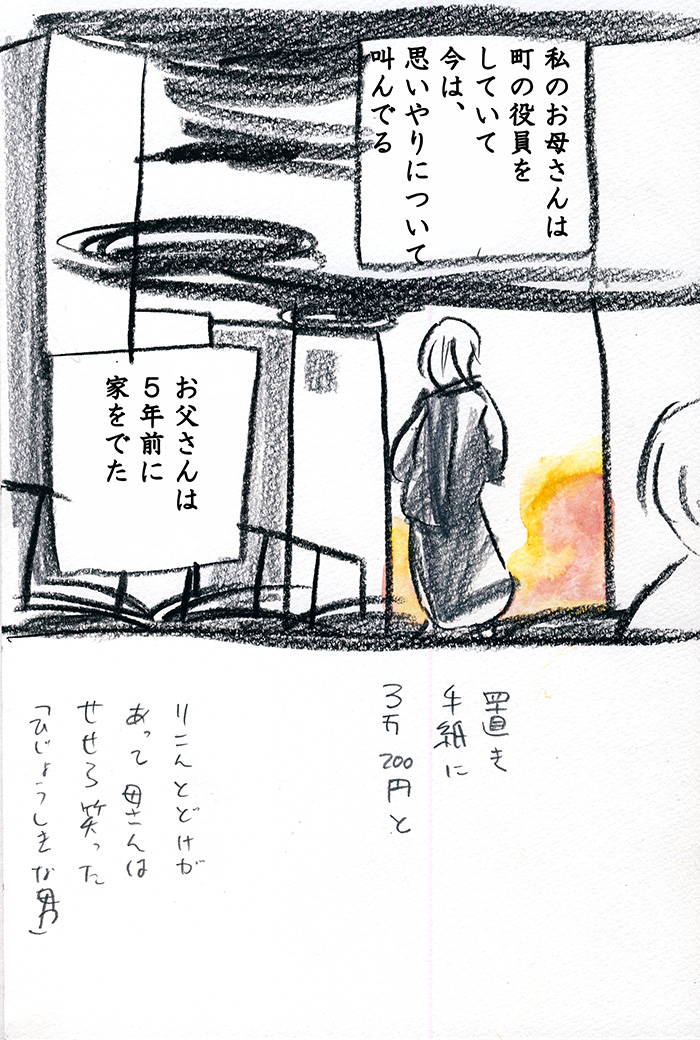 私のお母さんは
町の役員を
していて
今は、
思いやりについて
叫んでる
お父さんは
5年前に
家をでた
置き
手紙に
3万200円と
りこんとどけが
あって母さんは
せせら笑った
「ひじょうしきな男」